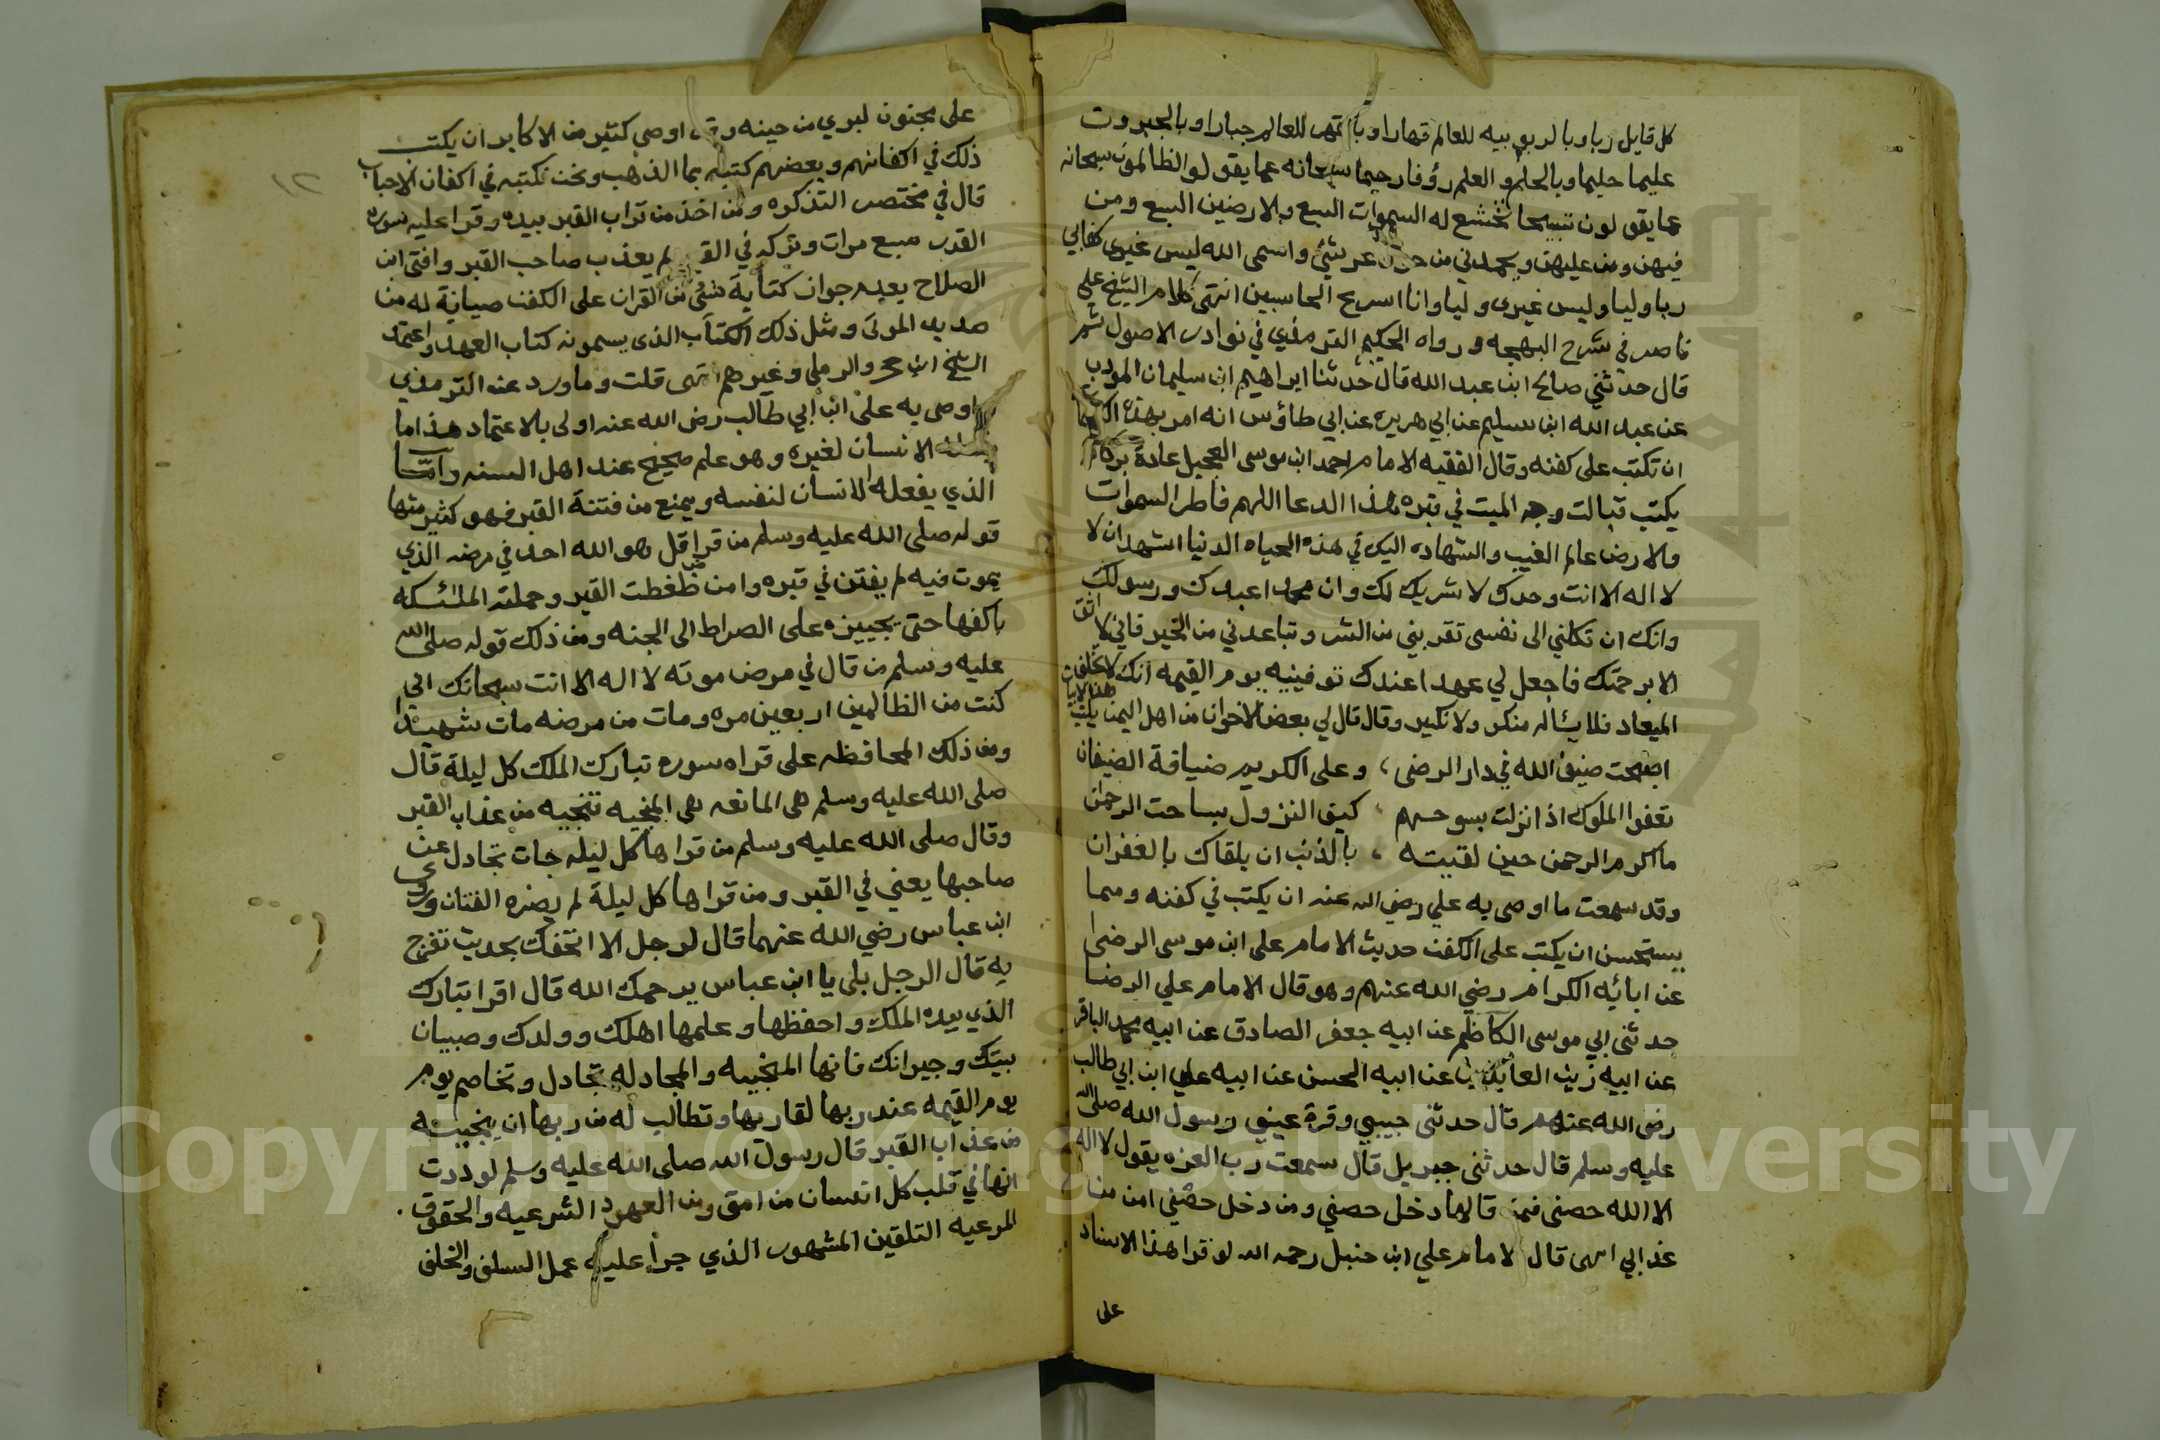 كل قايل ربا وبالربوبيه للعالم قهارا وبا للعالم جبارا وبالجبروت
عليما حليما وبالحلم والعلم رؤفا رحيما سبحانه عما يقولوا الظالمون سبحانه
عما يقولون تسبيحا تخشع له السموات السبع والارضين السبع ومن
فيهن ومن عليهن ويحمدني من حول عرشي واسمى الله ليس غيرى كفا بي
ربا وليا وليس غيرى وليا وانا اسرع الحاسبين انتهى كلام الشيخ على
ناصر في شرح البهجه ورواه الحكيم الترمذي في نوادر الاصول ثم
قال حدثني صالح ابن عبد الله قال حدثنا ابراهيم ابن سليمان المودب
عن عبد الله ابن سليم عن ابي هريره عن ابي طاؤس انه امر بهذه الكلمات
ان تكتب على كفنه وقال الفقيه الامام احمد ابن موسى العجيل عادة
يكتب قبالت وجه الميت في قبره هذا الدعا اللهم فاطر السموات
والارض عالم الغيب والشهاده اليك في هذه الحياه الدنيا اشهد ان لا
لا اله الا انت وحدك لا شريك لك وان محمدا عبدك ورسولك
وانك ان تكلني الى نفسى تقربني من الشر وتباعدني من الخير فاني لا اثق
الا برحمتك فاجعل لي عهدا عندك توفينيه يوم القيمه انك لا تخلف
الميعاد فلا يساله منكر ولا نكير وقال قال لي بعض الاخوان من اهل اليمن يكتب هذا الابيات
اضحت ضيف الله في دار الرضى ، وعلى الكريم ضيافة الضيفان
تعفوا الملوك اذا نزلت بسوحهم ، كيف النزول بساحت الرحمن
ما اكرم الرحمن حين لقيته ، بالذنب ان يلقاك بالغفران
وقد سمعت ما اوصى به علي رضي الله عنه ان يكتب في كفنه ومما
يستحسن ان يكتب على الكفن حديث الامام على ابن موسى الرضى
عن ابائيه الكرام رضي الله عنهم وهو قال الامام علي الرضا
حدثنى ابي موسى الكاظم عن ابيه جعفر الصادق عن ابيه محمد الباقر
عن ابيه زين العابدين عن ابيه الحسن عن ابيه علي ابن ابي طالب
رضى الله عنهم قال حدثنى حبيبي وقرة عيني رسول الله صلى الله
عليه وسلم قال حدثنى جبريل قال سمعت رب العزه يقول لا اله
الا الله حصنى فمن قالها دخل حصني ومن دخل حصني امن من
عذابي انتهى قال الامام علي ابن حنبل رحمه الله لو قرا هذا الاسناد
على
على مجنون لبري من حينه وقد اوصى كثير من الاكابر ان يكتب
ذلك في اكفانهم وبعضهم كتبه بما الذهب ونحن نكتبه في اكفان الاحباب
قال في مختصر التذكره ومن اخذ من تراب القبر بيده وقرا عليه سوره
القدر سبع مرات وتركه في القبر لم يعذب صاحب القبر وافتى ابن
الصلاح بعدم جواز كتابة شى من القران على الكفن صيانة له من
صديد الموتى ومثل ذلك الكتاب الذى يسمونه كتاب العهد واعتمد
الشيخ ابن حجر والرملي وغيرهم انتهى قلت وما ورد عنه الترمذي
اوصى به على ابن ابي طالب رضى الله عنه اولى بالاعتماد هذا ما
الانسان لغيره وهو علم صحيح عند اهل السنه واما
الذي يفعله الانسان لنفسه ويمنع من فتنة القبر فهو كثير منها
قوله صلى الله عليه وسلم من قرا قل هو الله احد في مرضه الذي
يموت فيه لم يفتن في قبره وامن ضغطت القبر وحملته الملئكه
باكفها حتى يجيزه على الصراط الى الجنه ومن ذلك قوله صلى الله
عليه وسلم من قال في مرض موته لا اله الا انت سبحانك اني
كنت من الظالمين اربعين مره ومات من مرضه مات شهيدا
ومن ذلك المحافظه على قراه سوره تبارك الملك كل ليلة قال
صلى الله عليه وسلم هى المانعه هى المنجيه تنجيه من عذاب القبر
وقال صلى الله عليه وسلم من قراها كل ليله جات تجادل عن
صاحبها يعني في القبر ومن قراها كل ليلة لم يضره الفتان وروى
ابن عباس رضي الله عنهما قال لرجل الا اتحفك بحديث تفرح
به قال الرجل بلى يا ابن عباس يرحمك الله قال اقرا تبارك
الذي بيده الملك واحفظها وعلمها اهلك وولدك وصبيان
بيتك وجيرانك فانها المنجيه والمجادله تجادل وتخاصم يوم
يوم القيمه عند ربها لقاريها وتطالب له من ربها ان ينجيه
من عذاب القبر قال رسول الله صلى الله عليه وسلم لوددت
انها في قلب كل انسان من امتى ومن العهود الشرعيه والحقوق
المرعيه التلقين المشهور الذي جرا عليه عمل السلف والخلف
١٢
Copyright © King Saud University